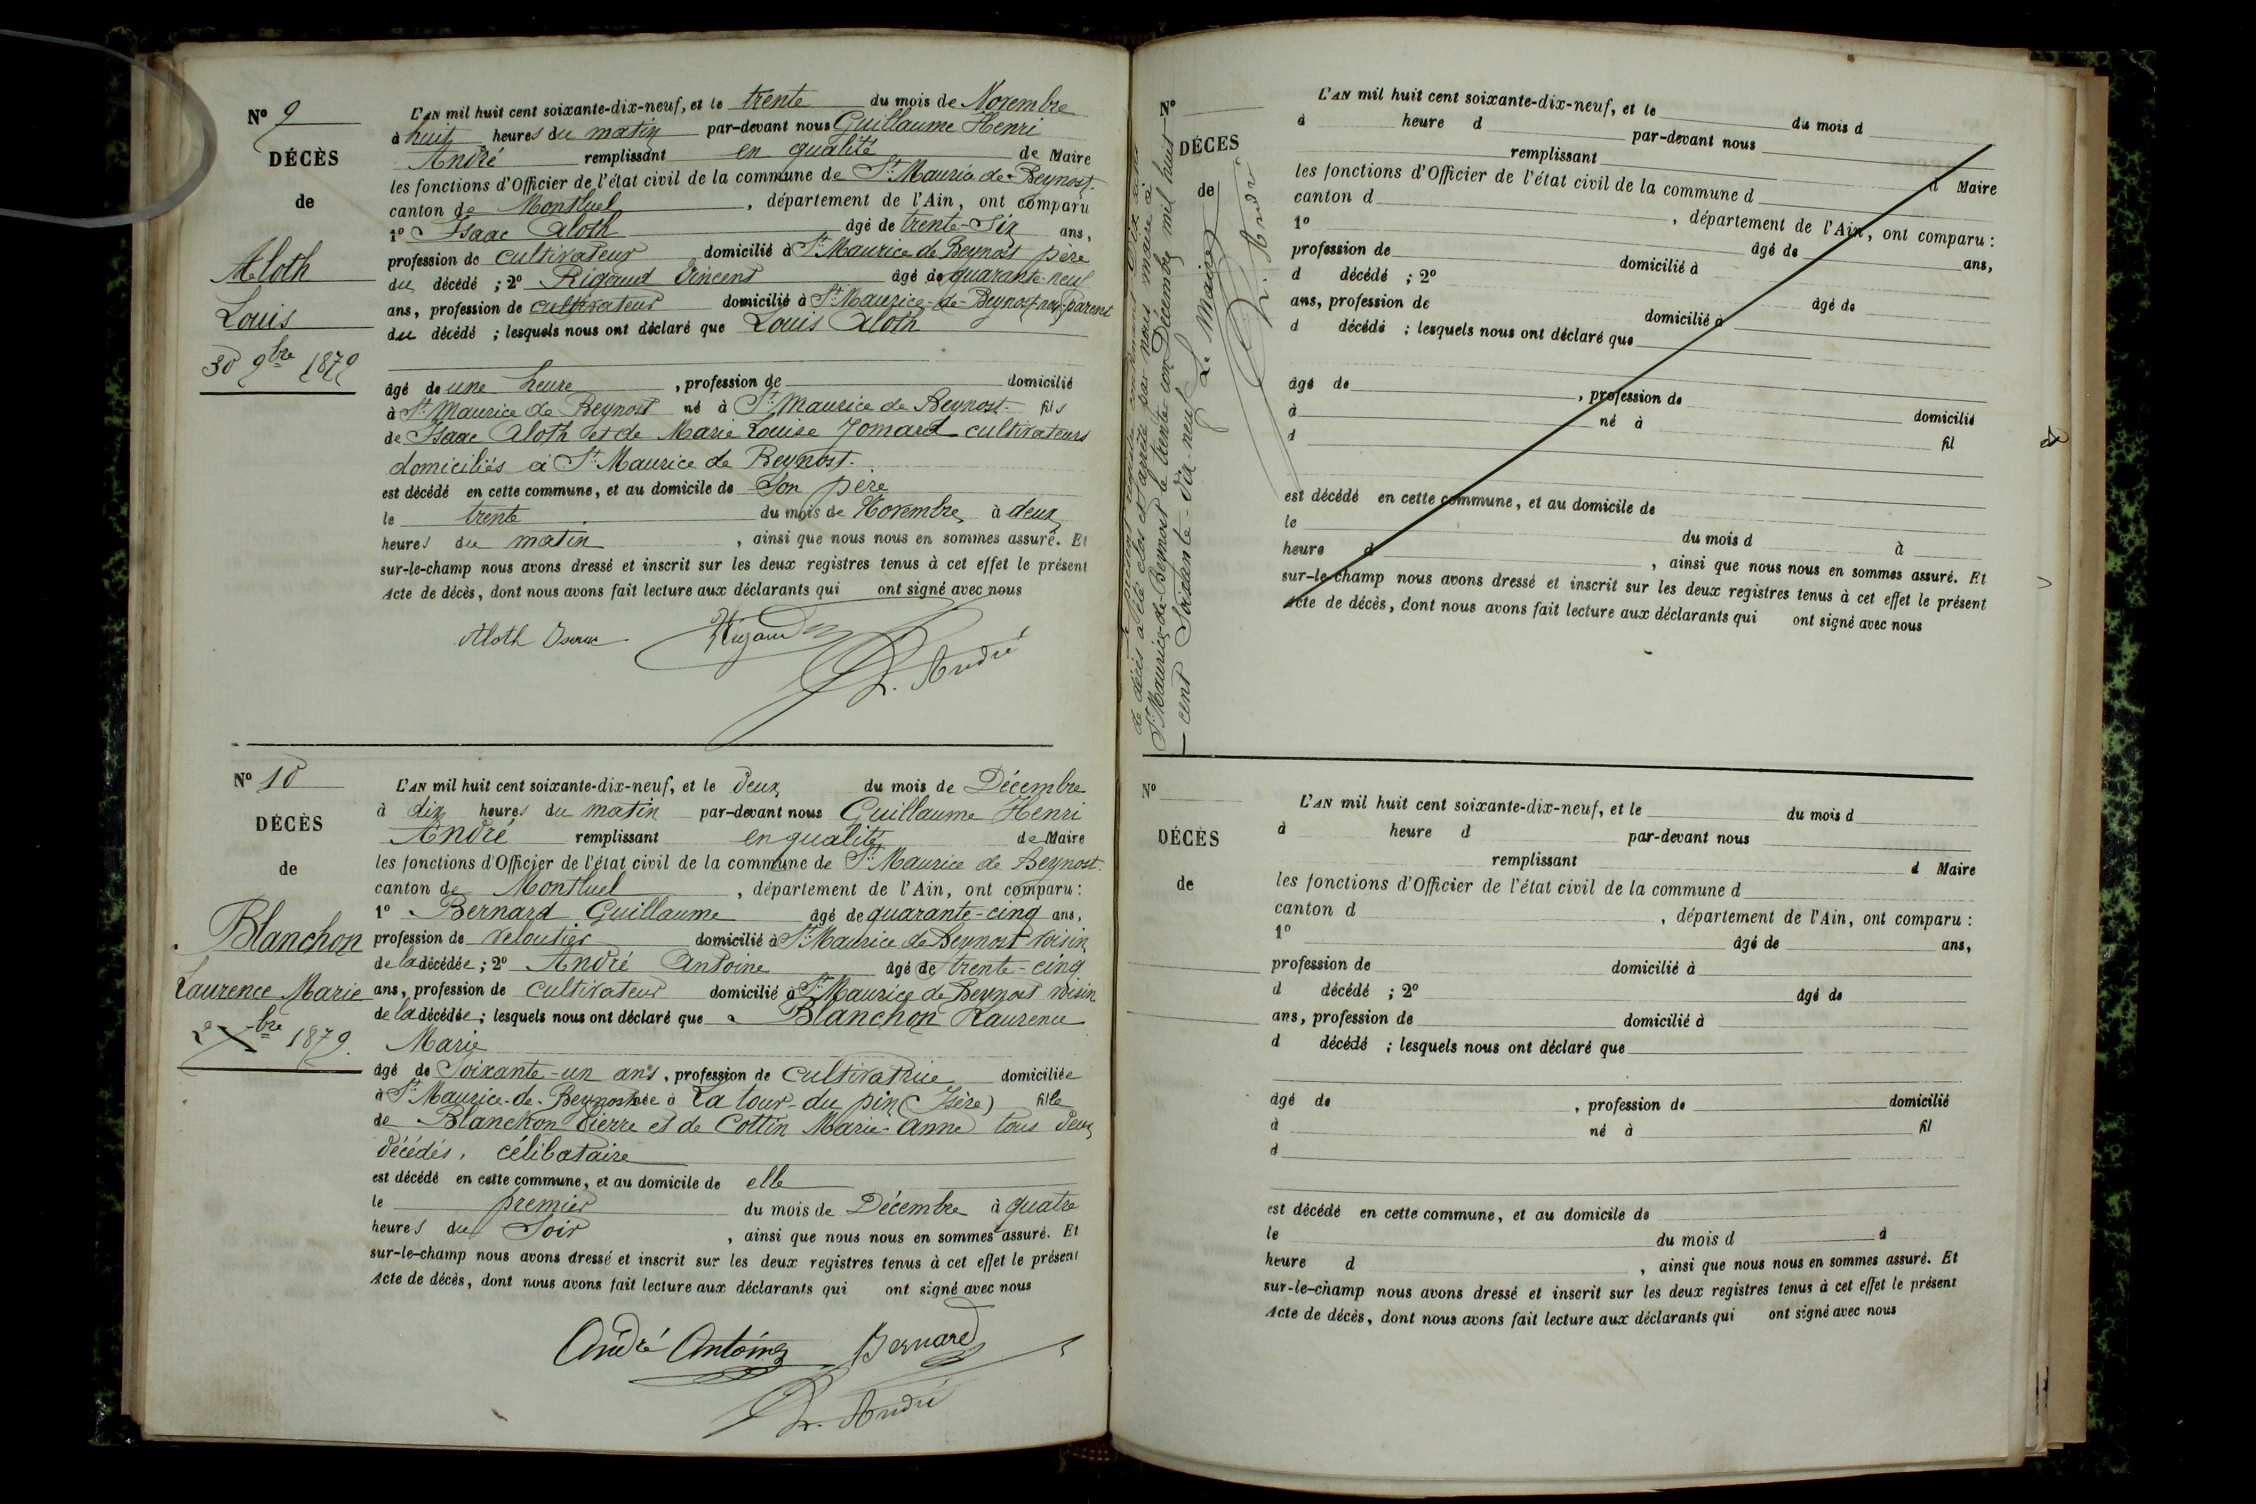 Nº 9
DÉCÈS
de
Aloth
Louis
30 9bre 1879
L'AN mil huit cent soixante-dix-neuf, et le trente du mois de Novembre
à huit heures du matin par-devant nous Guillaume Henri
André remplissant en qualité de Maire
les fonctions d'Officier de l'état civil de la commune de St Maurice de Beynost
canton de Montluel, département de l'Ain, ont comparu
1º Isaac Aloth âgé de trente-six ans,
profession de cultivateur domicilié à St Maurice de Beynost père
du décédé ; 2º Rigaud Vincent âgé de quarante-neuf
ans, profession de cultivateur domicilié à St Maurice-de-Beynost non parent
du décédé ; lesquels nous ont déclaré que Louis Aloth
âgé de une heure, profession de domicilié
à St Maurice de Beynost né à St Maurice de Beynost fils
de Isaac Aloth et de Marie Louise Jomard cultivateurs
domiciliés à St Maurice de Beynost.
est décédé en cette commune, et au domicile de Son père
le trente du mois de Novembre, à deux
heures du matin, ainsi que nous nous en sommes assuré. Et
sur-le-champ nous avons dressé et inscrit sur les deux registres tenus à cet effet le présent
Acte de décès, dont nous avons fait lecture aux déclarants qui ont signé avec nous
Aloth Isaac Rigaud
h. André
Nº 10
DÉCÈS
de
Blanchon
Laurence Marie
2 Xbre 1879.
L'AN mil huit cent soixante-dix-neuf, et le deux du mois de Décembre
à dix heures du matin par-devant nous Guillaume Henri
André remplissant en qualité de Maire
les fonctions d'Officier de l'état civil de la commune de St Maurice de Beynost.
canton de Montluel, département de l'Ain, ont comparu :
1º Bernard Guillaume âgé de quarante-cinq ans,
profession de veloutier domicilié à St Maurice de Beynost voisin
de la décédée ; 2º André Antoine âgé de trente-cinq
ans, profession de cultivateur domicilié à St Maurice de Beynost voisin
de la décédée ; lesquels nous ont déclaré que Blanchon Laurence
Marie
âgé de Soixante-un ans, profession de cultivatrice domiciliée
à St Maurice-de-Beynost née à La tour-du pin (Isère) fille
de Blanchon Pierre et de Cottin Marie-Anne tous deux
décédés, célibataire
est décédé en cette commune, et au domicile de elle
le premier du mois de Décembre à quatre
heures du Soir, ainsi que nous nous en sommes assuré. Et
sur-le-champ nous avons dressé et inscrit sur les deux registres tenus à cet effet le présent
Acte de décès, dont nous avons fait lecture aux déclarants qui ont signé avec nous
André Antoine Bernard
h. André
de décès a été clos et arrêté par nous maire à
St Maurice-de-Beynost le trente-un Décembre mil huit
cent Soixante-dix-neuf
Le Maire
h. André
Nº
DÉCÈS
de
L'AN mil huit cent soixante-dix-neuf, et le du mois d
à heure d par-devant nous
remplissant d Maire
les fonctions d'Officier de l'état civil de la commune d
canton d , département de l'Ain, ont comparu :
1º âgé de ans,
profession de domicilié à
d décédé ; 2º âgé de
ans, profession de domicilié à
d décédé ; lesquels nous ont déclaré que
âgé de , profession de domicilié
à né à fil
d
est décédé en cette commune, et au domicile de
le du mois d à
heure d , ainsi que nous nous en sommes assuré. Et
sur-le-champ nous avons dressé et inscrit sur les deux registres tenus à cet effet le présent
Acte de décès, dont nous avons fait lecture aux déclarants qui ont signé avec nous
Nº
DÉCÈS
de
L'AN mil huit cent soixante-dix-neuf, et le du mois d
à heure d par-devant nous
remplissant d Maire
les fonctions d'Officier de l'état civil de la commune d
canton d , département de l'Ain, ont comparu :
1º âgé de ans,
profession de domicilié à
d décédé ; 2º âgé de
ans, profession de domicilié à
d décédé ; lesquels nous ont déclaré que
âgé de , profession de domicilié
à né à fil
d
est décédé en cette commune, et au domicile de
le du mois d à
heure d , ainsi que nous nous en sommes assuré. Et
sur-le-champ nous avons dressé et inscrit sur les deux registres tenus à cet effet le présent
Acte de décès, dont nous avons fait lecture aux déclarants qui ont signé avec nous